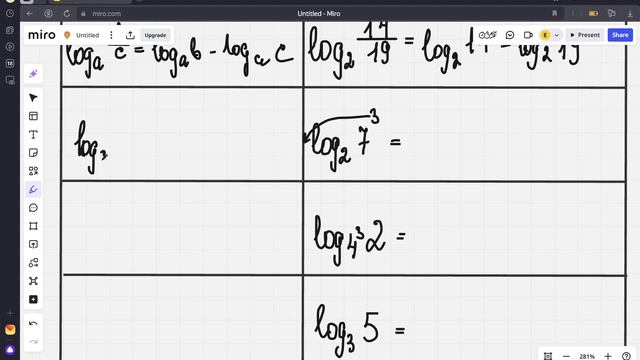 miro.com
Untitled - Miro
miro Untitled Upgrade
E Present Share
logₐ c = logₐ b - logₐ c
log₂ 17/19 = log₂ 17 - log₂ 19
log
log₂ 7³ =
log₄³ 2 =
log₃ 5 =
281%